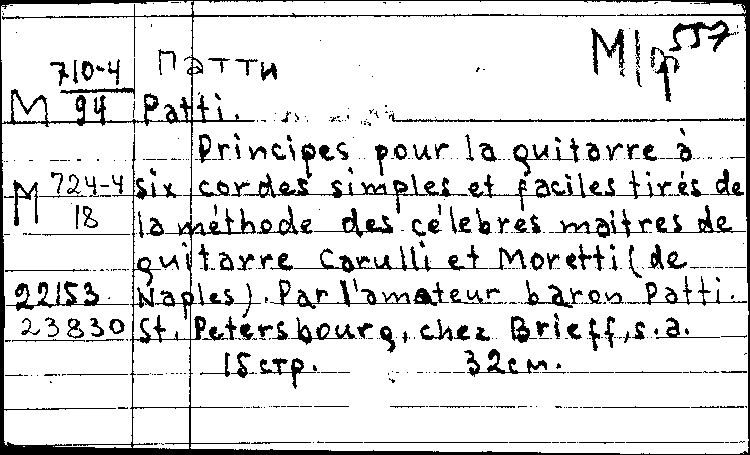 710-4 Патти М/ф 557
М 94 Patti.
Principes pour la guitarre à
М 724-4 six cordes simples et faciles tirés de
18 la méthode des célebres maitres de
guitarre Carulli et Moretti (de
22153 Naples). Par l'amateur baron Patti.
23830 St. Petersbourg, chez Brieff, s.a.
15 стр. 32 см.